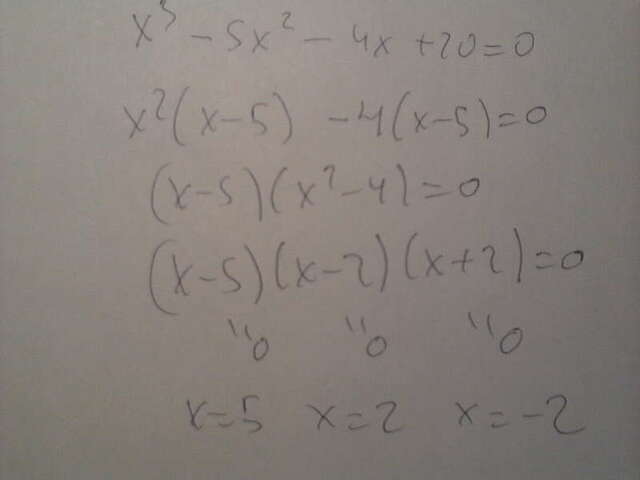 x³ - 5x² - 4x + 20 = 0
x²(x-5) -4(x-5) = 0
(x-5)(x²-4) = 0
(x-5)(x-2)(x+2) = 0
"0 "0 "0
x=5 x=2 x=-2